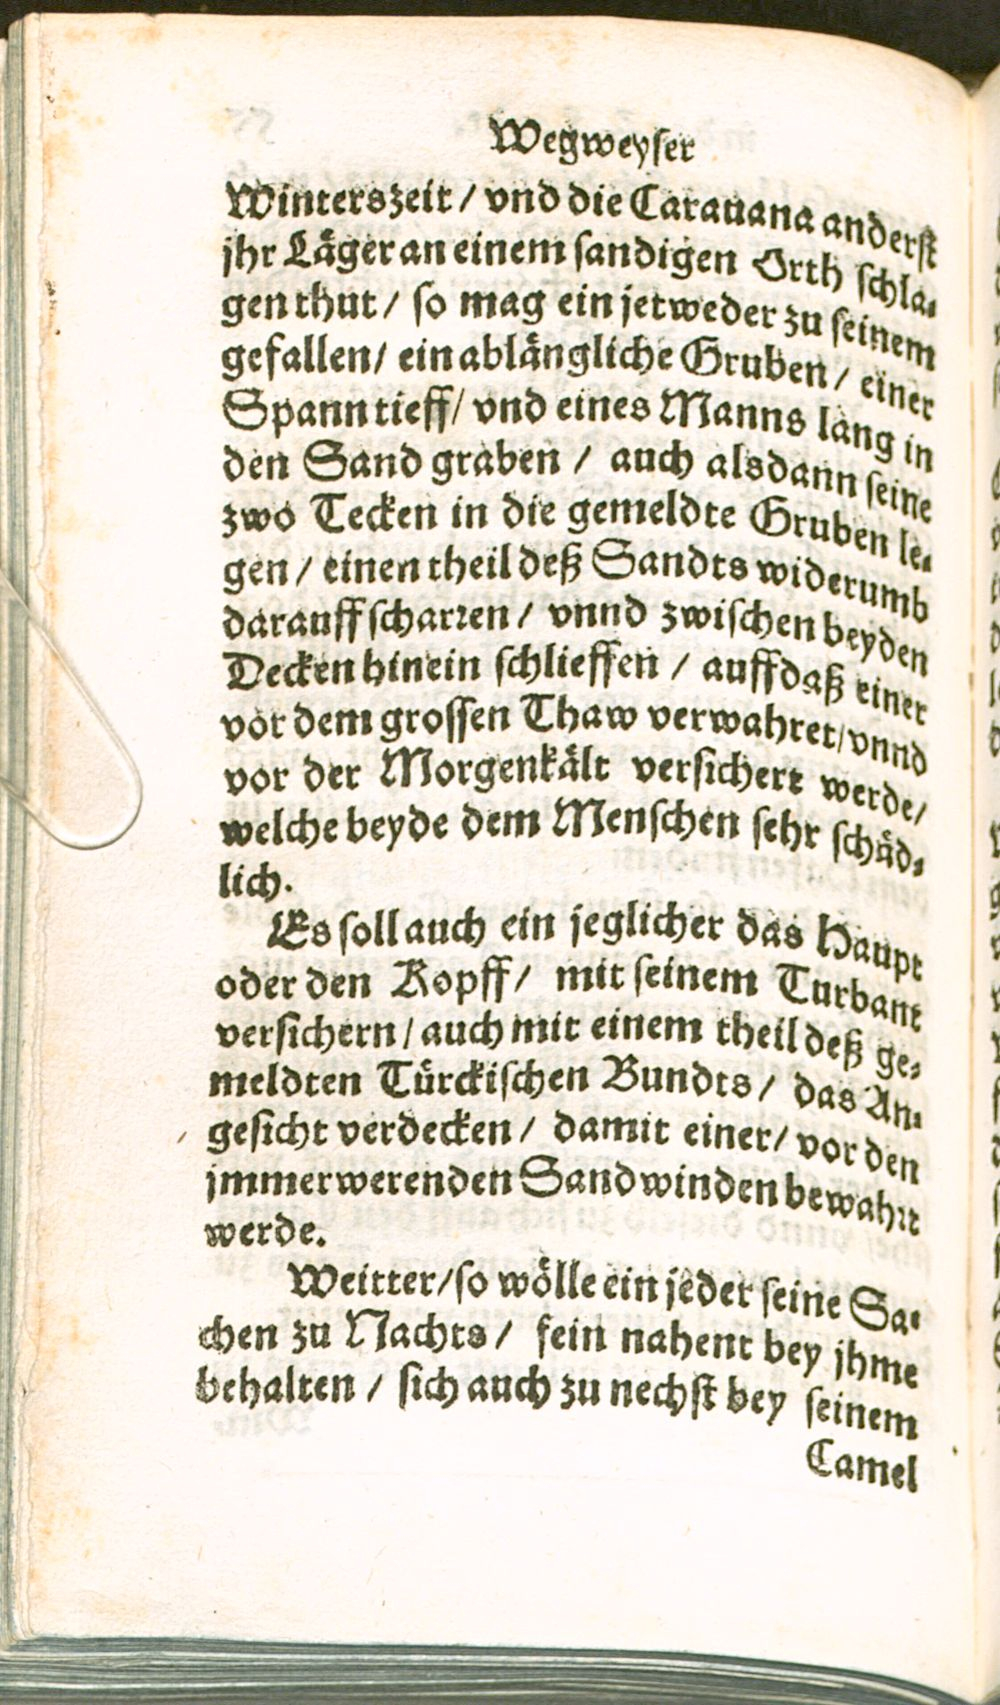 Wegweyser
Winterszeit / vnd die Carauana anderst
jhr Läger an einem sandigen Orth schla-
gen thut / so mag ein jetweder zu seinem
gefallen / ein ablängliche Gruben / einer
Spann tieff / vnd eines Manns lang in
den Sand graben / auch alsdann seine
zwo Tecken in die gemeldte Gruben le-
gen / einen theil deß Sandts widerumb
darauff scharren / vnnd zwischen beyden
Decken hinein schlieffen / auff daß einer
vor dem grossen Thaw verwahret / vnnd
vor der Morgenkält versichert werde /
welche beyde dem Menschen sehr schäd-
lich.
Es soll auch ein jeglicher das Haupt
oder den Kopff / mit seinem Turbant
versichern / auch mit einem theil deß ge-
meldten Türckischen Bundts / das An-
gesicht verdecken / damit einer / vor den
jmmerwerenden Sandwinden bewahrt
werde.
Weitter / so wölle ein jeder seine Sa-
chen zu Nachts / fein nahent bey jhme
behalten / sich auch zu nechst bey seinem
Camel